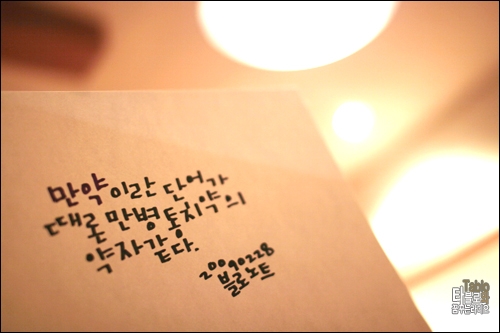 만약이란 단어가
때론 만병통치약의
약자같다.
20090228
블로노트
Tablo
타블로와
꿈꾸는라디오